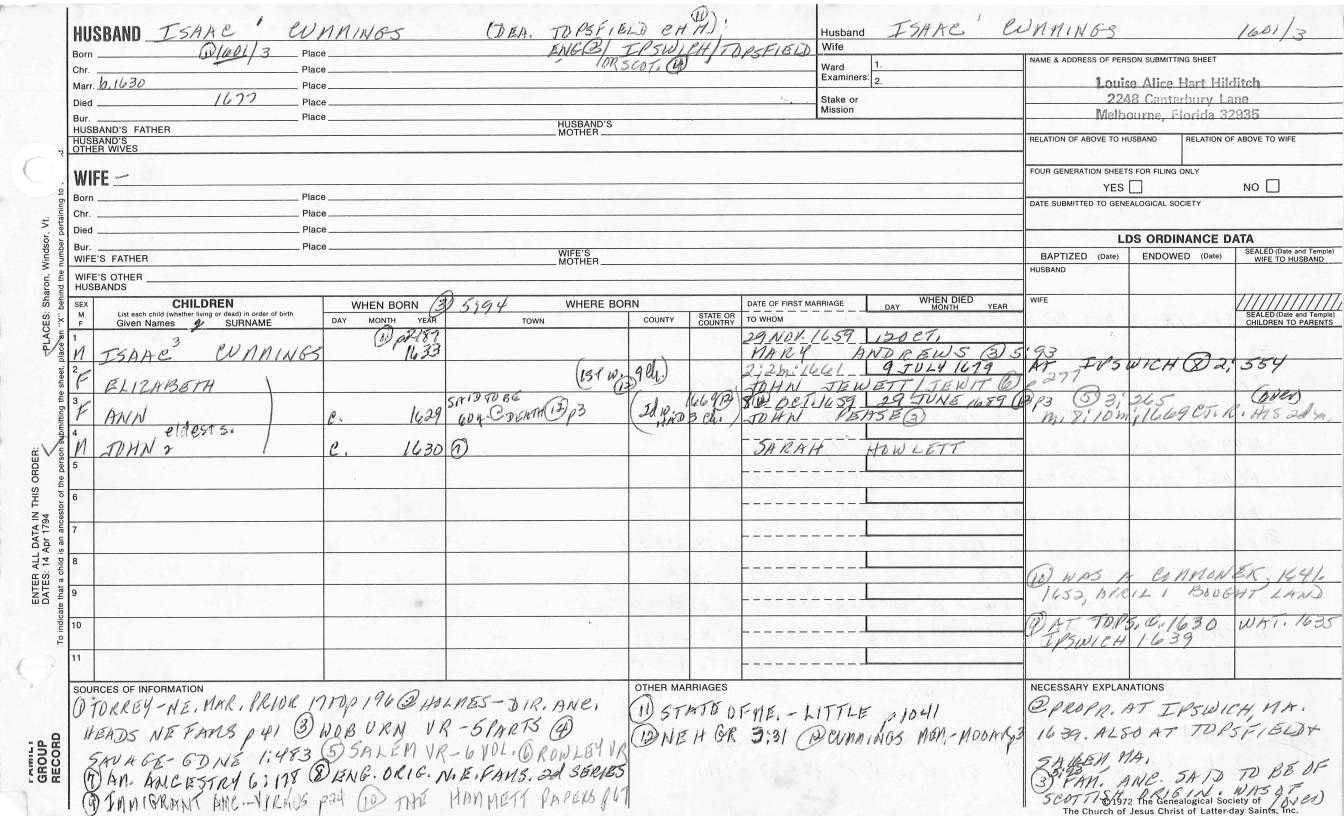 HUSBAND ISAAC' CUMMINGS (DEA. TOPSFIELD CH (11));
Born (1) 1601/3 Place ENG (2) / IPSWICH / TOPSFIELD
Chr. Place /OR SCOT. (4)
Marr. b. 1630 Place
Died 1677 Place
Bur. Place
HUSBAND'S FATHER HUSBAND'S MOTHER
HUSBAND'S OTHER WIVES
WIFE —
Born Place
Chr. Place
Died Place
Bur. Place
WIFE'S FATHER WIFE'S MOTHER
WIFE'S OTHER HUSBANDS
Husband ISAAC' CUMMINGS 1601/3
Wife
Ward Examiners: 1.
2.
Stake or Mission
NAME & ADDRESS OF PERSON SUBMITTING SHEET
Louise Alice Hart Hilditch
2248 Canterbury Lane
Melbourne, Florida 32935
RELATION OF ABOVE TO HUSBAND RELATION OF ABOVE TO WIFE
FOUR GENERATION SHEETS FOR FILING ONLY
YES NO
DATE SUBMITTED TO GENEALOGICAL SOCIETY
LDS ORDINANCE DATA
BAPTIZED (Date) ENDOWED (Date) SEALED (Date and Temple) WIFE TO HUSBAND
HUSBAND
WIFE
SEALED (Date and Temple) CHILDREN TO PARENTS
SEX M F
CHILDREN
List each child (whether living or dead) in order of birth
Given Names SURNAME
WHEN BORN (3) 5;94 WHERE BORN
DAY MONTH YEAR TOWN COUNTY STATE OR COUNTRY
DATE OF FIRST MARRIAGE
TO WHOM
WHEN DIED
DAY MONTH YEAR
1 M ISAAC 3 CUMMINGS 1633 29 NOV. 1659 12 OCT.
MARY ANDREWS (3) 5;93 AT IPSWICH 2; 554
2 F ELIZABETH (1st w. 9 ch.) 2;2b;1661 9 JULY 1679
JOHN JEWETT / JEWIT (6) 277
3 F ANN c. 1629 SAID TO BE 60 @ DEATH (12) p3 (2d w. HAD 3 ch.) OCT. 1659 29 JUNE 1689 (12) p3 (5) 3; 265 (over)
JOHN PEASE (3) m. 8; 10m; 1669 CT. R. HIS 2d m.
4 M JOHN 2 eldest s. c. 1630 (7)
SARAH HOWLETT
5
6
7
8
9
10
11
(10) WAS A COMMONER, 1641.
1652, APRIL 1 BOUGHT LAND
(9) AT TOPS. c. 1630 WAT. 1635
IPSWICH 1639
SOURCES OF INFORMATION
(1) TORREY-NE. MAR. PRIOR 1700 p 196 (2) HOLMES-DIR. ANC.
HEADS NE FAMS p 41 (3) WOBURN VR-5 PARTS (4)
SAVAGE-GDNE 1:483 (5) SALEM VR-6 VOL. (6) ROWLEY VR
(7) AM. ANCESTRY 6; 178 (8) ENG. ORIG. N.E. FAMS. 2d SERIES
(9) IMMIGRANT ANC.-VIRKUS p24 (10) THE HAMMETT PAPERS p67
OTHER MARRIAGES
(11) STATE OF ME. - LITTLE p1041
(12) NEHGR 3:31 (12) CUMMINGS MEM.-MOOAR p3
NECESSARY EXPLANATIONS
(2) PROPR. AT IPSWICH, MA.
1639. ALSO AT TOPSFIELD +
SALEM MA.
(3) 5;93 FAM. ANC. SAID TO BE OF
SCOTTISH ORIGIN. WAS OF (over)
©1972 The Genealogical Society of
The Church of Jesus Christ of Latter-day Saints, Inc.
FAMILY GROUP RECORD
ENTER ALL DATA IN THIS ORDER:
DATES: 14 Apr 1794
PLACES: Sharon, Windsor, Vt.
To indicate that a child is an ancestor of the person submitting the sheet, place an "X" behind the number pertaining to